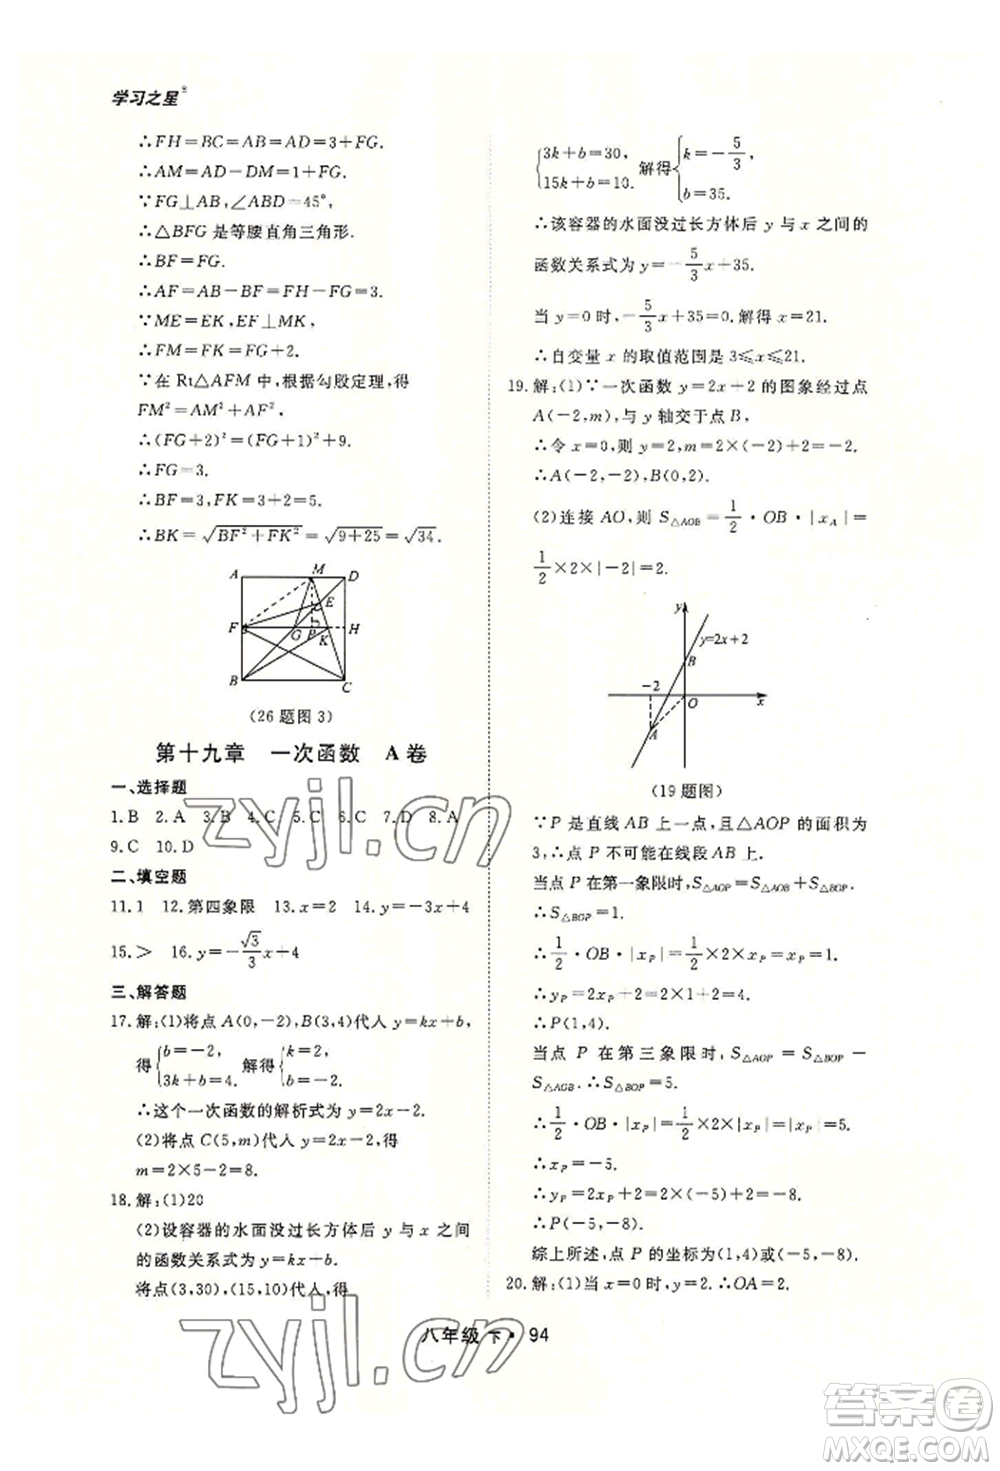 学习之星®
∴FH=BC=AB=AD=3+FG.
∴AM=AD-DM=1+FG.
∵FG⊥AB,∠ABD=45°,
∴△BFG 是等腰直角三角形.
∴BF=FG.
∴AF=AB-BF=FH-FG=3.
∵ME=EK,EF⊥MK,
∴FM=FK=FG+2.
∵在 Rt△AFM 中,根据勾股定理,得
FM²=AM²+AF².
∴(FG+2)²=(FG+1)²+9.
∴FG=3.
∴BF=3,FK=3+2=5.
∴BK=√(BF²+FK²)=√(9+25)=√34.
A M D
E
F G P K H
B C
(26 题图 3)
第十九章 一次函数 A 卷
一、选择题
1.B 2.A 3.B 4.C 5.C 6.C 7.D 8.A
9.C 10.D
二、填空题
11.1 12.第四象限 13.x=2 14.y=-3x+4
15.> 16.y=-√3/3x+4
三、解答题
17.解:(1)将点 A(0,-2),B(3,4)代入 y=kx+b,
得{b=-2, 3k+b=4. 解得{k=2, b=-2.
∴这个一次函数的解析式为 y=2x-2.
(2)将点 C(5,m)代入 y=2x-2,得
m=2×5-2=8.
18.解:(1)20
(2)设容器的水面没过长方体后 y 与 x 之间
的函数关系式为 y=kx+b.
将点(3,30),(15,10)代入,得
{3k+b=30, 15k+b=10. 解得{k=-5/3, b=35.
∴该容器的水面没过长方体后 y 与 x 之间的
函数关系式为 y=-5/3x+35.
当 y=0 时,-5/3x+35=0. 解得 x=21.
∴自变量 x 的取值范围是 3≤x≤21.
19.解:(1)∵一次函数 y=2x+2 的图象经过点
A(-2,m),与 y 轴交于点 B,
∴令 x=0,则 y=2. m=2×(-2)+2=-2.
∴A(-2,-2),B(0,2).
(2)连接 AO,则 S△AOB=1/2·OB·|xA|=
1/2×2×|-2|=2.
y
y=2x+2
B
-2
O x
A
(19 题图)
∵P 是直线 AB 上一点,且△AOP 的面积为
3,∴点 P 不可能在线段 AB 上.
当点 P 在第一象限时,S△AOP=S△AOB+S△BOP.
∴S△BOP=1.
∴1/2·OB·|xP|=1/2×2×xP=xP=1.
∴yP=2xP+2=2×1+2=4.
∴P(1,4).
当点 P 在第三象限时,S△AOP=S△BOP-
S△AOB.∴S△BOP=5.
∴1/2·OB·|xP|=1/2×2×|xP|=|xP|=5.
∴xP=-5.
∴yP=2xP+2=2×(-5)+2=-8.
∴P(-5,-8).
综上所述,点 P 的坐标为(1,4)或(-5,-8).
20.解:(1)当 x=0 时,y=2.∴OA=2.
八年级 下·94
zyjl.cn
zyjl.cn
答案卷
MXQE.COM